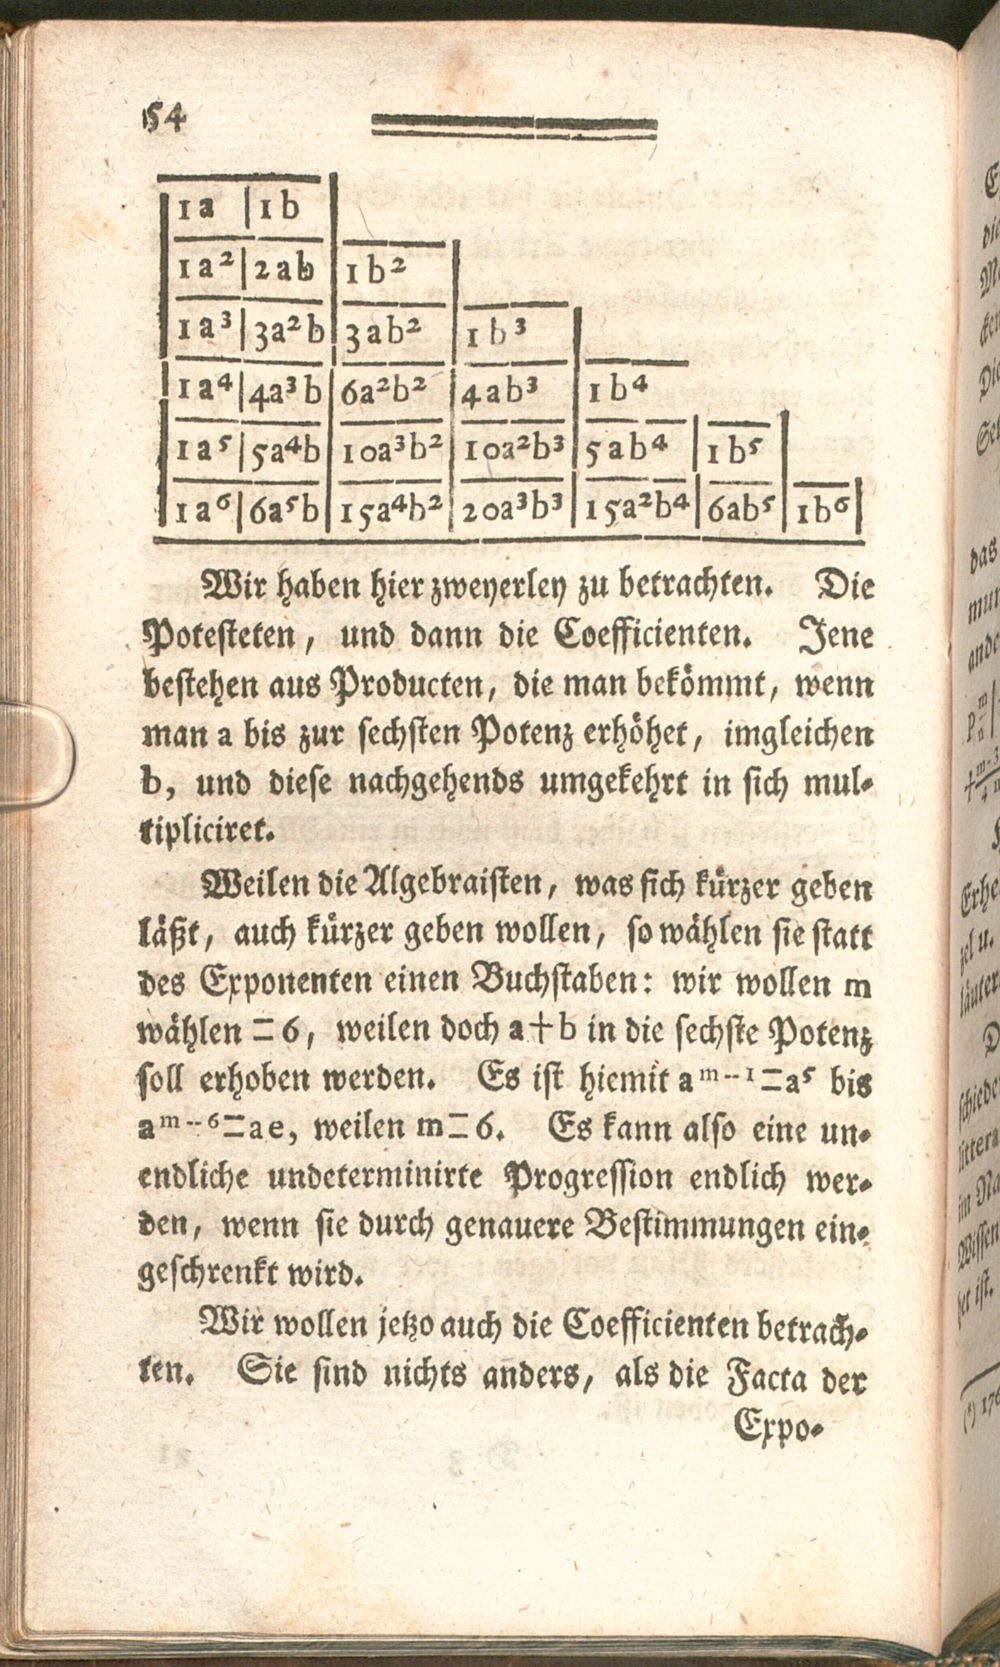 54
1a | 1b
1a² | 2ab | 1b²
1a³ | 3a²b | 3ab² | 1b³
1a⁴ | 4a³b | 6a²b² | 4ab³ | 1b⁴
1a⁵ | 5a⁴b | 10a³b² | 10a²b³ | 5ab⁴ | 1b⁵
1a⁶ | 6a⁵b | 15a⁴b² | 20a³b³ | 15a²b⁴ | 6ab⁵ | 1b⁶
Wir haben hier zweyerley zu betrachten. Die
Potesteten, und dann die Coefficienten. Jene
bestehen aus Producten, die man bekömmt, wenn
man a bis zur sechsten Potenz erhöhet, imgleichen
b, und diese nachgehends umgekehrt in sich mul-
tipliciret.
Weilen die Algebraisten, was sich kürzer geben
läßt, auch kürzer geben wollen, so wählen sie statt
des Exponenten einen Buchstaben: wir wollen m
wählen = 6, weilen doch a + b in die sechste Potenz
soll erhoben werden. Es ist hiemit aᵐ⁻⁻¹ = a⁵ bis
aᵐ⁻⁻⁶ = ae, weilen m = 6. Es kann also eine un-
endliche undeterminirte Progression endlich wer-
den, wenn sie durch genauere Bestimmungen ein-
geschrenkt wird.
Wir wollen jetzo auch die Coefficienten betrach-
ten. Sie sind nichts anders, als die Facta der
Expo-